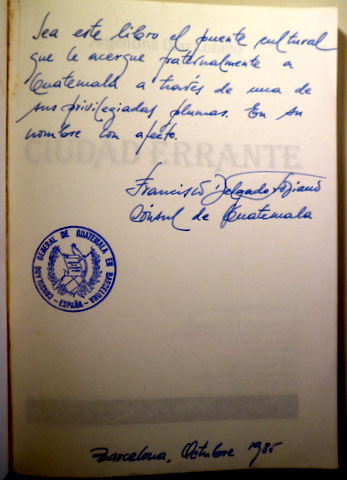 Sea este libro el puente cultural
que le acerque fraternalmente a
Guatemala a través de una de
sus privilegiadas plumas. En su
nombre con afecto.
Argentina Díaz Lozano
CIUDAD ERRANTE
Francisco Delgado
Cónsul de Guatemala
CONSULADO GENERAL DE GUATEMALA EN BARCELONA
- ESPAÑA -
Barcelona, Octubre 1985